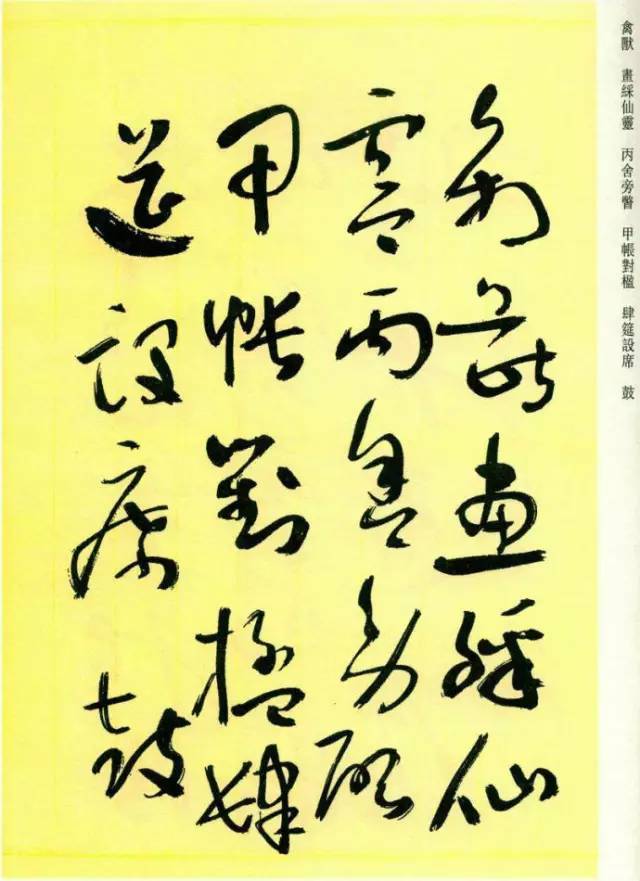 禽獸 畫綵仙靈 丙舍旁 甲帳對楹 肆筵設席 鼓
禽獸畫綵仙
靈丙舍旁啟
甲帳對楹肆
筵設席鼓